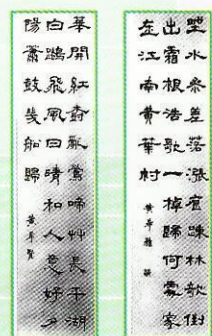 壄水參差落漲痕疎林欹倒
出霜根浩歌一棹歸何處家
在江南黃葉村
華開紅樹亂鶯啼艸長平湖
白鷺飛風日晴和人意好夕
陽蕭鼓幾船歸